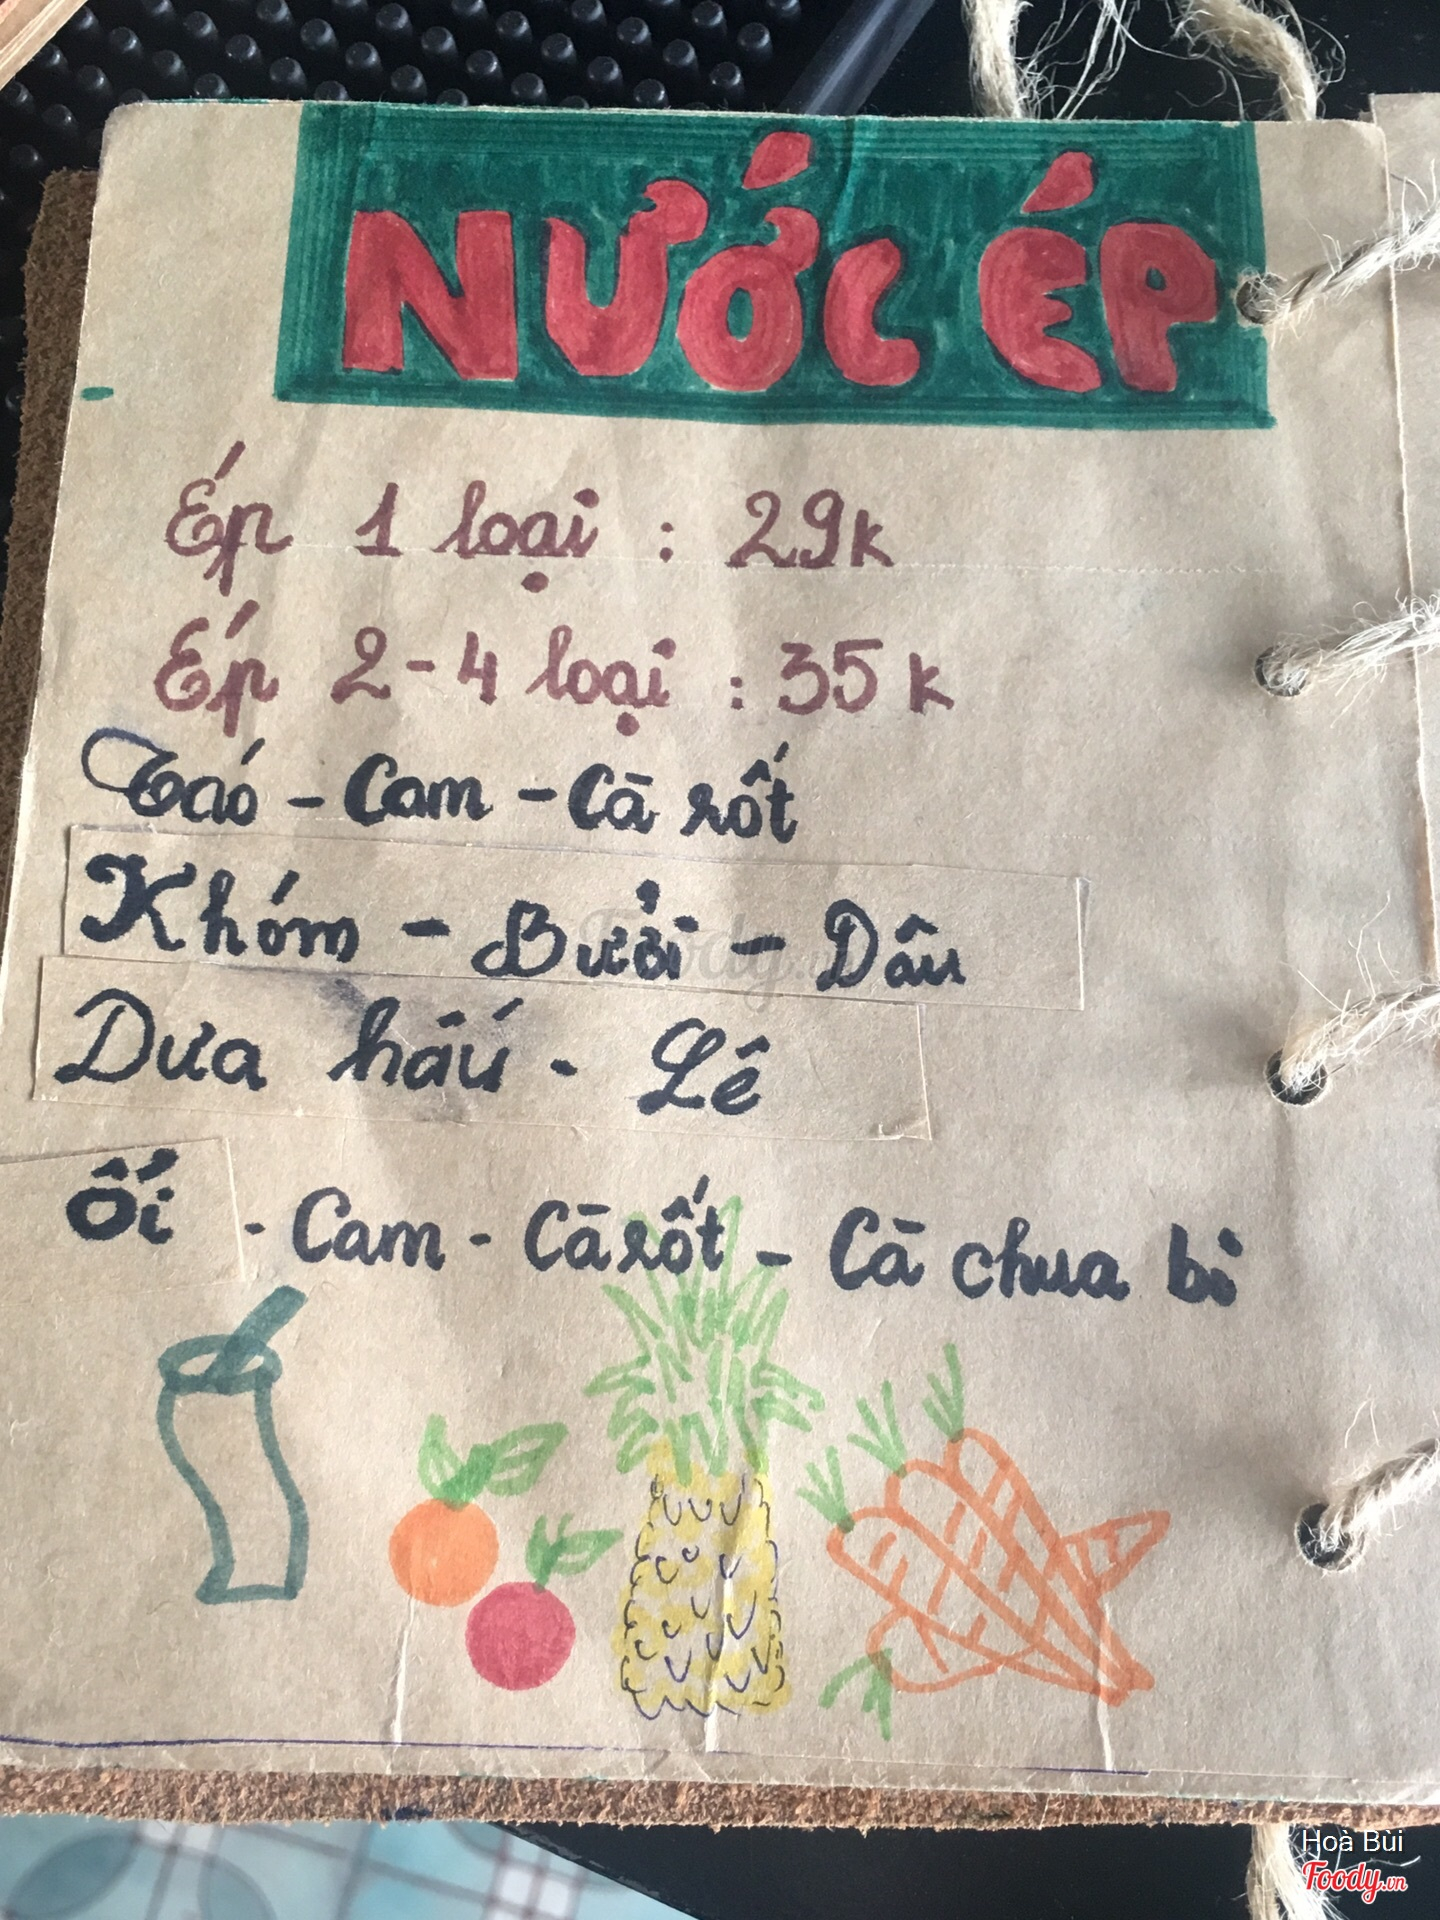 NƯỚC ÉP
Ép 1 loại : 29k
Ép 2-4 loại : 35k
Táo - Cam - Cà rốt
Khóm - Bưởi - Dâu
Dưa hấu - Lê
Ổi - Cam - Cà rốt - Cà chua bi
Foody.vn
Hoà Bùi
Foody.vn